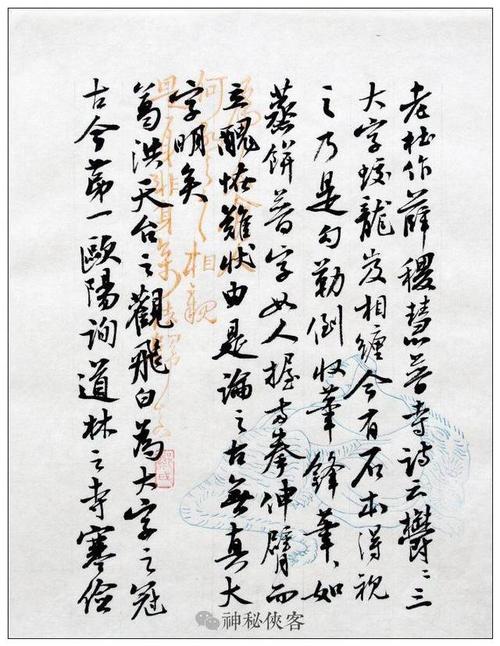 老杜作薛稷慧普寺詩云鬱〻三
大字蛟龍岌相纏今有石本得視
之乃是勾勒倒收筆鋒筆〻如
蒸餅普字如人握兩拳伸臂而
立醜恠難狀由是論之古無真大
字明矣
葛洪天台之觀飛白為大字之冠
古今第一歐陽詢道林之寺寒儉
神秘俠客